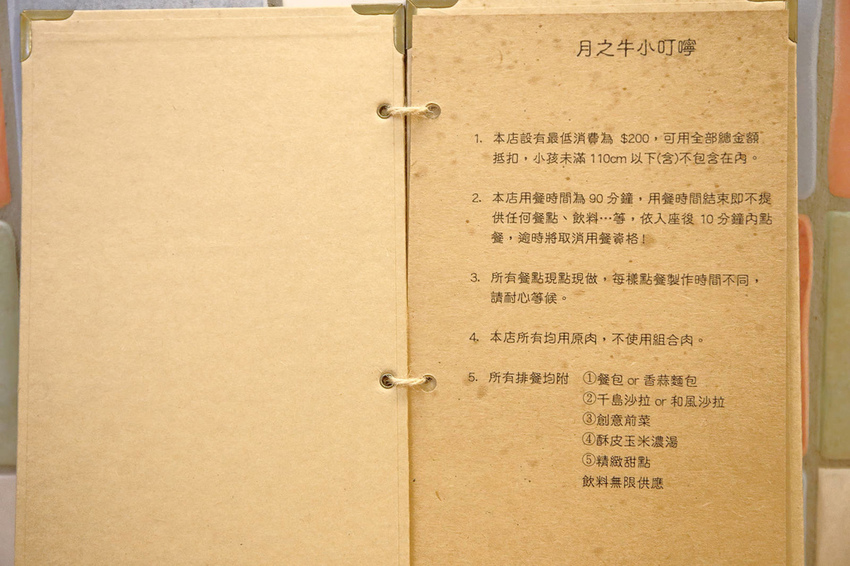 月之牛小叮嚀
1. 本店設有最低消費為 $200，可用全部總金額
抵扣，小孩未滿 110cm 以下(含)不包含在內。
2. 本店用餐時間為 90 分鐘，用餐時間結束即不提
供任何餐點、飲料…等，依入座後 10 分鐘內點
餐，逾時將取消用餐資格!
3. 所有餐點現點現做，每樣點餐製作時間不同，
請耐心等候。
4. 本店所有均用原肉，不使用組合肉。
5. 所有排餐均附 ①餐包 or 香蒜麵包
②千島沙拉 or 和風沙拉
③創意前菜
④酥皮玉米濃湯
⑤精緻甜點
飲料無限供應